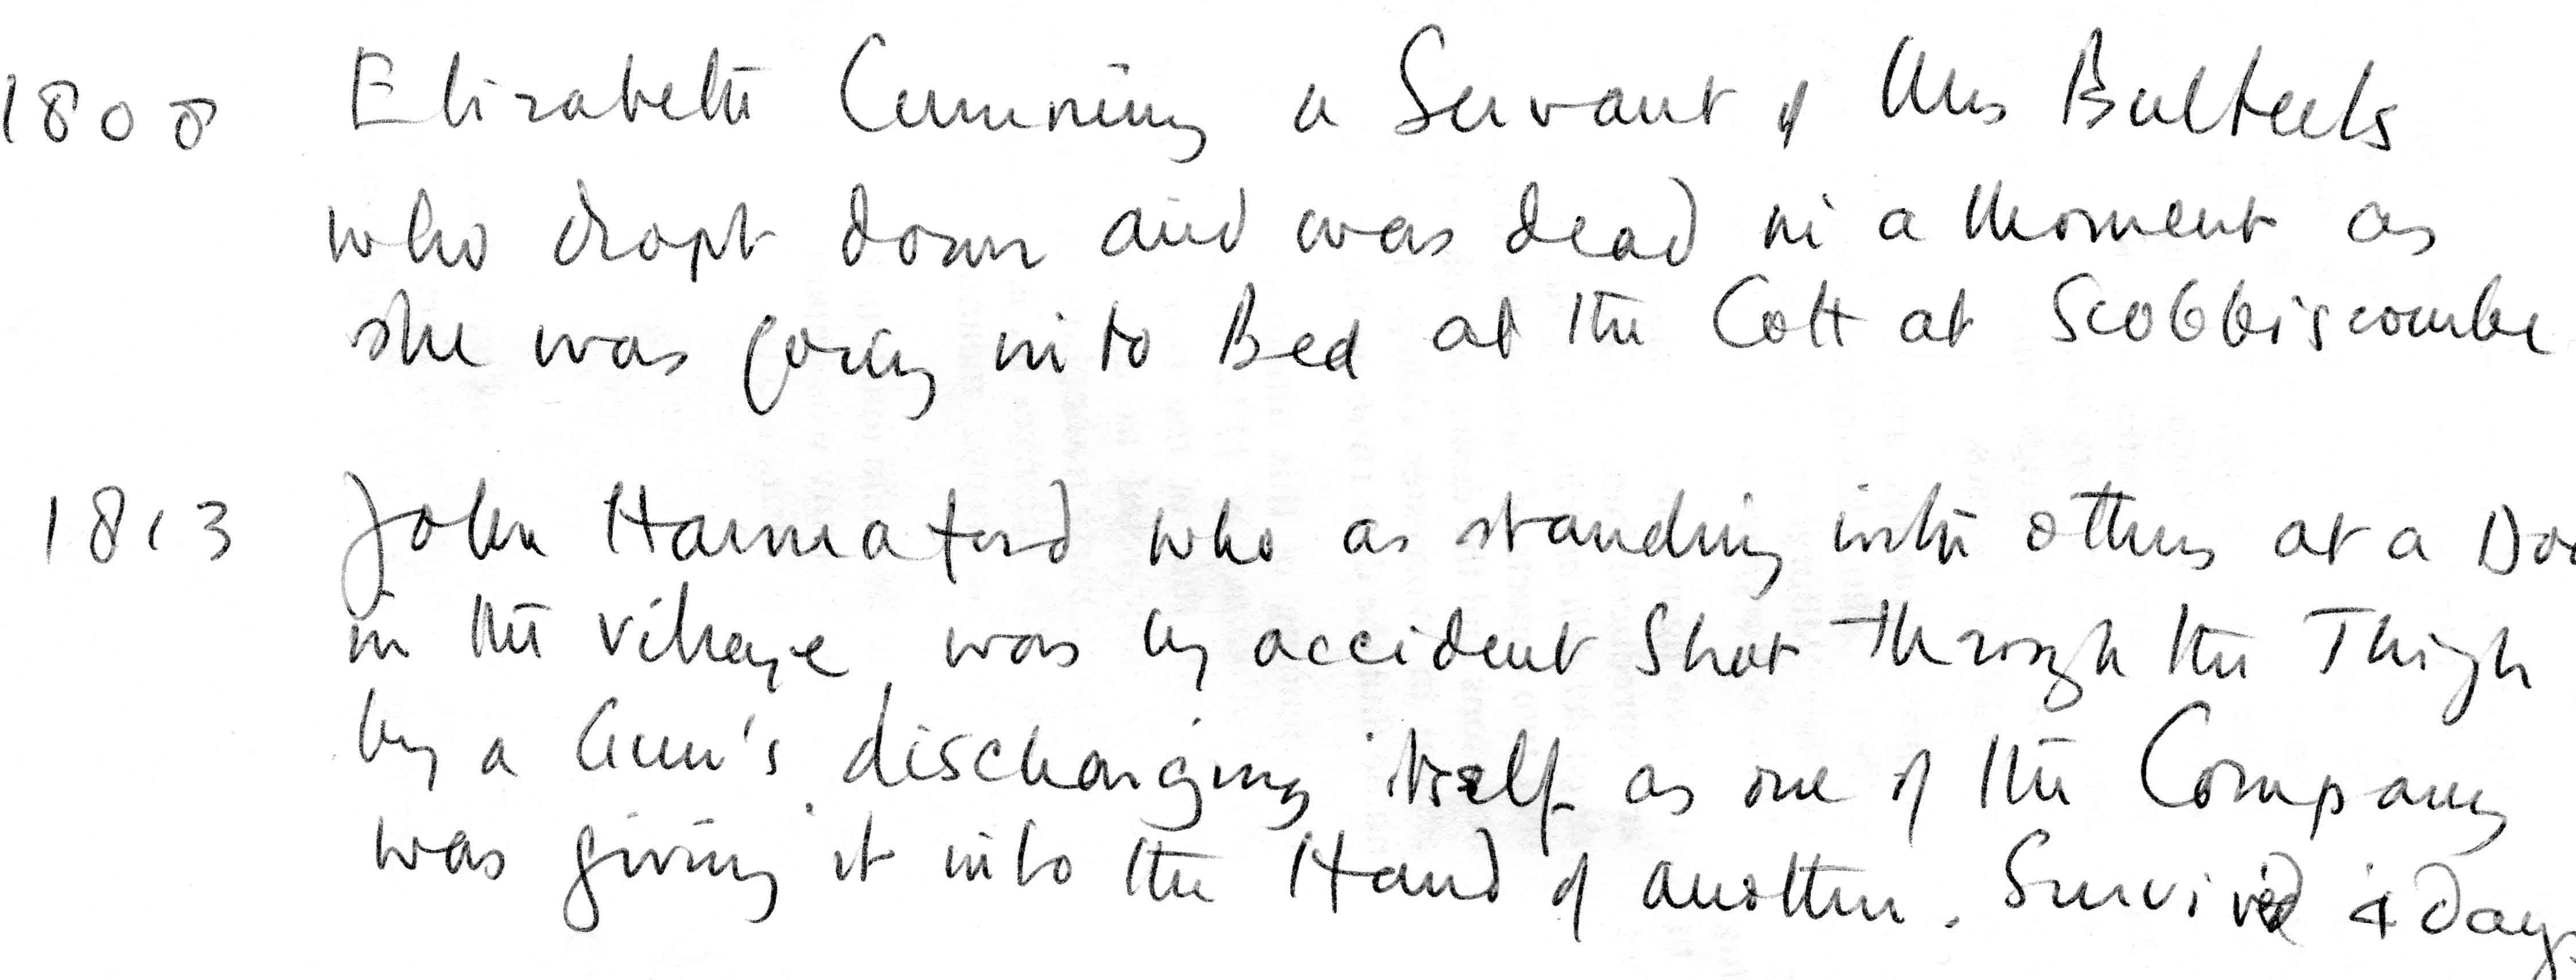 1808 Elizabeth Cumming a Servant of Mrs Bulteels
who dropt down and was dead in a Moment as
she was going into Bed at the Cott at Scobbiscombe
1813 John Hannaford who as standing with others at a Doo
in the village was by accident Shot through the Thigh
by a Gun's discharging itself as one of the Company
was giving it into the Hand of another. Survived 4 days